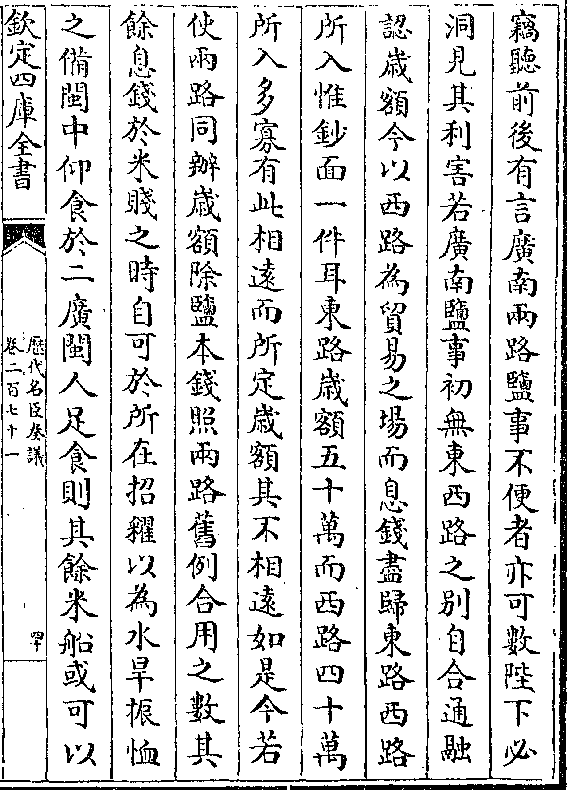 竊聽前後有言廣南兩路鹽事不便者亦可數陛下必
洞見其利害若廣南鹽事初無東西路之別自合通融
認歳額今以西路為貿易之場而息錢盡歸東路西路
所入惟鈔面一件耳東路歳額五十萬而西路四十萬
所入多寡有此相遠而所定歳額其不相遠如是今若
使兩路同辦歳額除鹽本錢照兩路舊例合用之數其
餘息錢於米賤之時自可於所在招糴以為水旱振恤
之備閩中仰食於二廣閩人足食則其餘米船或可以
欽定四庫全書
歷代名臣奏議
卷二百七十一